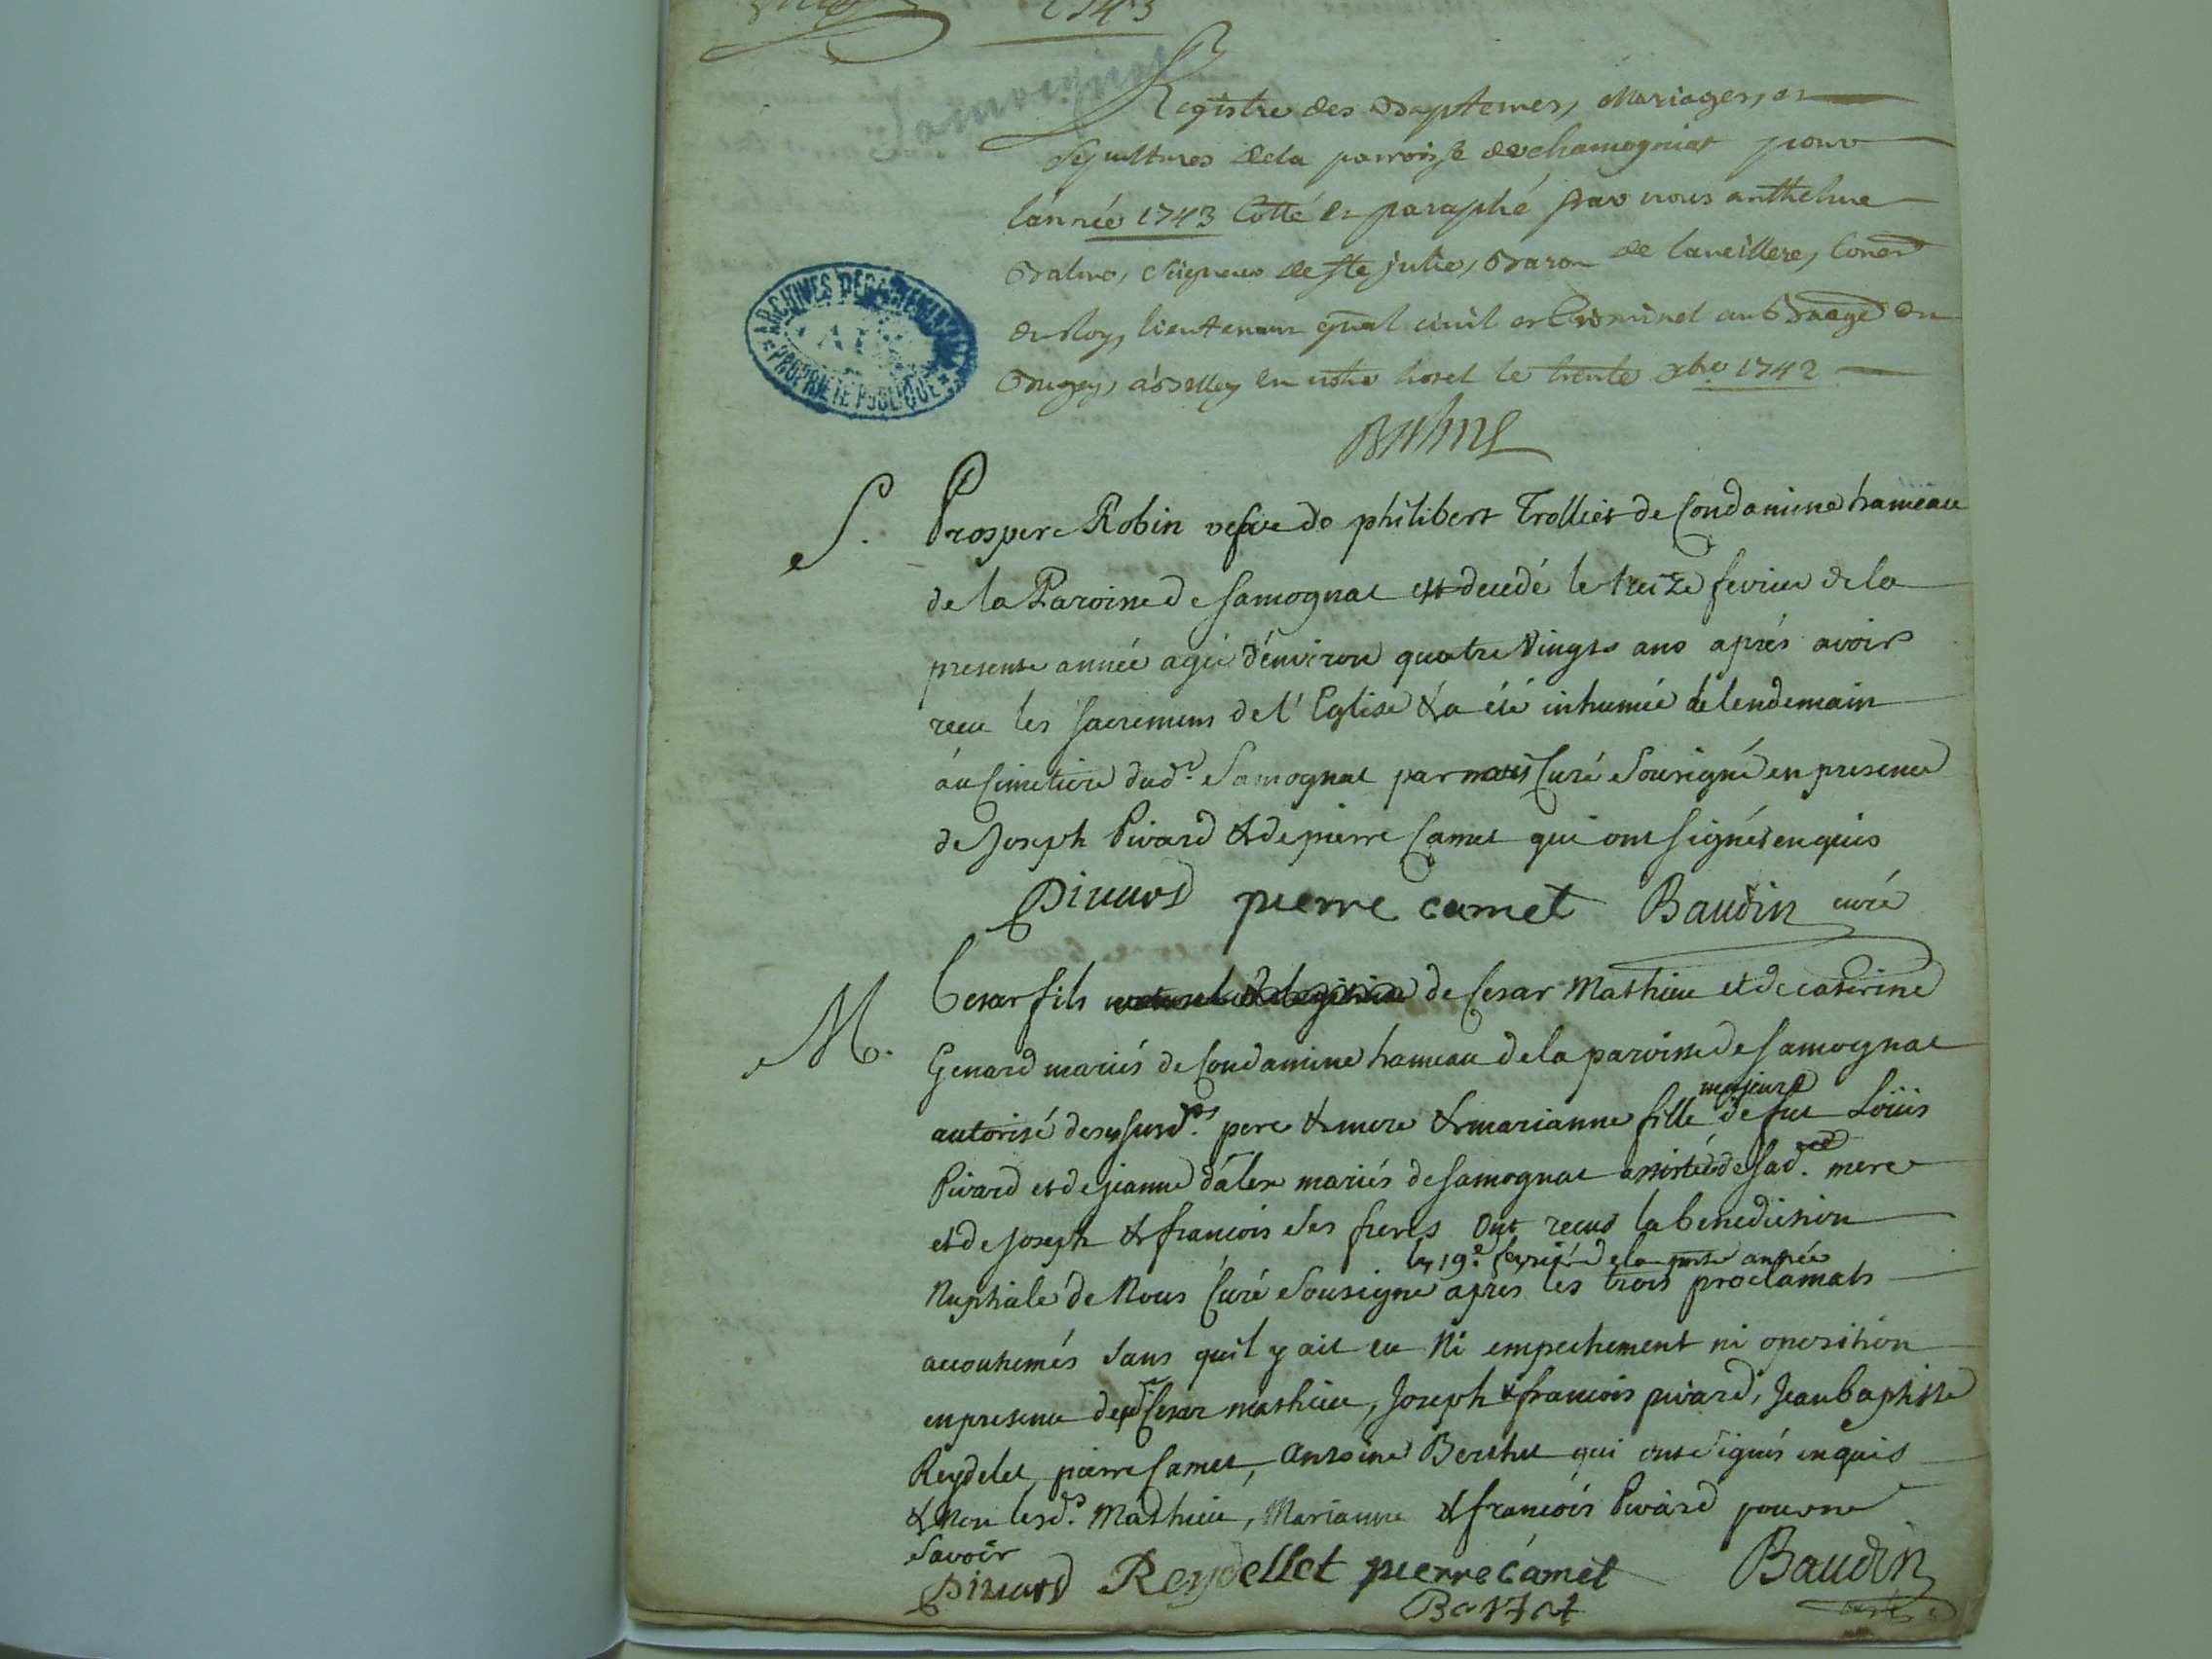 1743
Samognat
Registre des Baptemes, Mariages, et
Sepultures dela parroisse de chamogniat pour
lánnée 1743 Cotté et paraphé par nous anthelme
Balme, seigneur de ste julie, Baron de
du Roy, lieutenant gnal civil et Criminel au Bailliage du
Bugey, à Belley en notre hotel le trente xbre 1742
Balme
ARCHIVES DEPARTEMENTALES
AIN
PROPRIETE PUBLIQUE
S. Prospere Robin vefve de philibert Trolliet de Condamine hameau
de la Paroisse de Samognat est decedé le treize fevrier de la
presente année agée d'environ quatre Vingts ans aprés avoir
recu les sacremens de l'Eglise & a été inhumée le lendemain
áu Cimetiere dud.t Samognat par nous Curé Sousigné en presence
de Joseph Pivard & de pierre Camet qui ont signés enquis
Pivard pierre camet Baudin curé
M. Cesar fils naturel & legitime de Cesar Mathieu et de caterine
Genard mariés de Condamine hameau de la paroisse de Samognat
majeure
autorisé de ses susd.ts pere & mere & marianne fille de fut Loüis
Pivard et de jeanne dáler mariés de Samognat assistée de sad. mere
et de Joseph & francois ses freres Ont recus la benediction
le 19.e fevrier de la pnte année
Nuptiale de Nous Curé Sousigné apres les trois proclamats
accoutumés sans quil y ait eu Ni empechement ni oposition
en presence dud Cesar mathieu, Joseph & francois pivard, Jean baptiste
Reydelet, pierre Camet, Antoine Berthet qui ont signés enquis
& Non lesd.s Mathieu, Marianne & francois Pivard pour ne
savoir
Pivard Reydellet pierre camet Baudin
curé